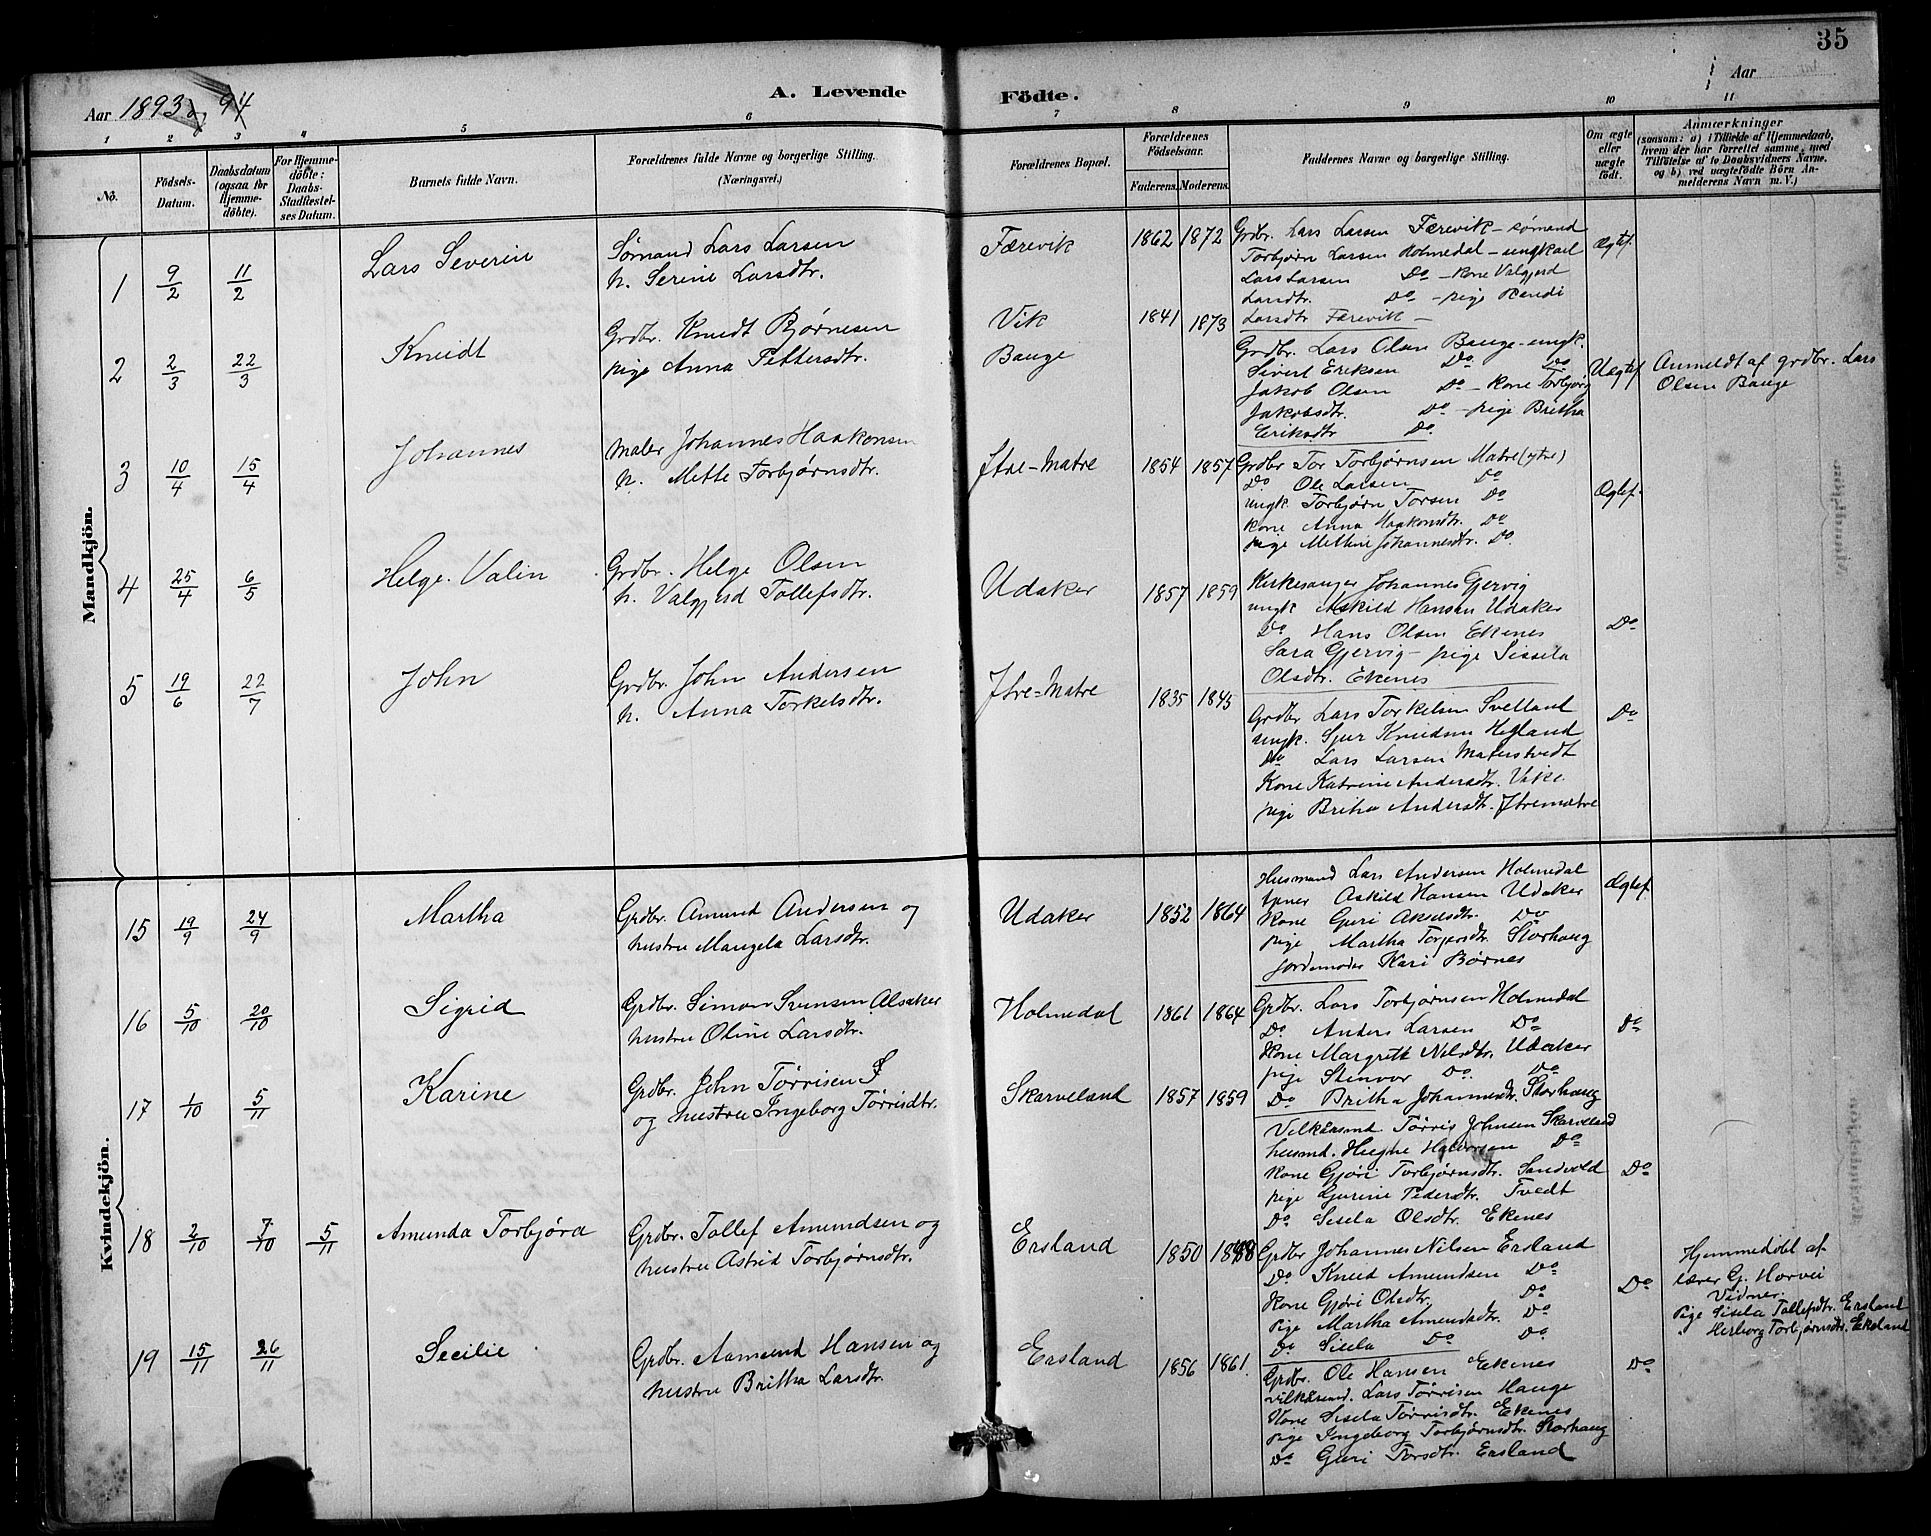 35
Aar 1893 og 94
A. Levende Födte.
Aar
1 2 3 4 5 6 7 8 9 10 11
No.
Födsels-Datum.
Daabsdatum (ogsaa for Hjemme-döbte).
For Hjemme-döbte: Daabs-Stadfæstel-ses Datum.
Barnets fulde Navn.
Forældrenes fulde Navne og borgerlige Stilling. (Næringsvei.)
Forældrenes Bopæl.
Forældrenes Födselsaar.
Faderens. Moderens.
Faddernes Navne og borgerlige Stilling.
Om ægte eller uægte födt.
Anmærkninger
(saasom: a) i Tilfælde af Hjemmedaab, hvem der har forrettet samme, med Tilföielse af to Daabsvidners Navne. og b) ved uægtefödte Börn An-melderens Navn m. V.)
Mandkjön.
1 9/2 11/2 Lars Severin
Sømand Lars Larsen
h. Serine Larsdtr.
Færevik 1862 1872
Grdbr. Lars Larsen Færevik - sømand
Torbjørn Larsen Holmedal - ungkarl
Lars Larsen Do - kone Valgjerd
Larsdtr. Do - pige Randi
Larsdtr Færevik -
Ægtef.
2 2/3 22/3 Knudt
Grdbr. Knudt Bjørnesen
pige Anna Pettersdtr.
Vik 1841
Bauge 1873
Grdbr. Lars Olsen Bauge - ungk.
Sivert Eriksen Do Do
Jakob Olsen Do - kone Torbjørg
Jakobsdtr. Do - pige Britha
Eriksdtr Do.
Uægtef
Anmeldt af grdbr. Lars
Olsen Bauge
3 10/4 15/4 Johannes
maler Johannes Haakonsen
h. Mette Torbjørnsdtr.
Itre-Matre 1854 1857
Grdbr Tor Torbjørnsen Matre (ytre)
Do Ole Larsen Do
ungk. Torbjørn Torsen Do
kone Anna Haakonsdtr. Do
pige Mettine Johannesdtr. Do.
Ægtef.
4 25/4 6/5 Helge Valin
Grdbr. Helge Olsen
h. Valgjerd Tollefsdtr.
Udaker 1857 1859
Kirkesanger Johannes Gjervig
ungk Askild Hansen Udaker
Do Hans Olsen Ekenes
Sara Gjervig - pige Sissela
Olsdtr. Ekenes
Do
5 19/6 22/7 John
Grdbr. John Andersen
h. Anna Torkelsdtr.
Itre-Matre 1835 1845
Grdbr Lars Torkelsen Svelland
ungk. Sjur Knudsen Hegland
Do Lars Larsen Materstvedt
Kone Katrine Andersdtr. Vike.
pige Britha Andersdtr. Itrematre
Do
Kvindekjön.
15 19/9 24/9 Martha
Grdbr. Amund Andersen og
hustru Mangela Larsdtr.
Udaker 1852 1864
Husmand Lars Andersen Holmedal
Askild Hansen Udaker
Kone Guri Do
pige Martha Torgersdtr. Storhaug
Jordemoder Kari Børnes
Ægtef.
16 5/10 20/10 Sigrid
Grdbr. Simon Svensen Alsaker
hustru Oline Larsdtr.
Holmedal 1861 1864
Grdbr. Lars Torbjørnsen Holmedal
Do Anders Larsen Do
Kone Margrete Nilsdtr. Udaker
pige Stinvor Do Do
Do Britha Johannesdtr. Storhaug
Do
17 1/10 5/11 Karine
Grdbr. John Tørrisen S
og hustru Ingeborg Tørrisdtr.
Skarveland 1857 1859
Vilkårsmd. Tørris Johnsen Skarveland
husmd. Halvorsen Do
Kone Gjøri Torbjørnsdtr. Sandvold
pige Gurine Pedersdtr. Tvedt
Do Sisela Olsdtr. Ekenes
Do
18 2/10 7/10 5/11 Amunda Torbjøra
Grdbr. Tollef Amundsen og
hustru Astrid Torbjørnsdtr.
Ersland 1850 1848
Grdbr Johannes Nilsen Ersland
Do Knud Amundsen Do
Kone Gjøri Olsdtr. Do
Pige Martha Amundsdtr. Do
Do Sisela Do Do
Do
Hjemmedøbt af
lærer G. Horvei
Vidner.
Pige Sisela Tollefsdtr. Ersland
" Herborg Torbjørnsdtr. Ekeland
19 15/11 26/11 Secilie
Grdbr. Aamund Hansen og
hustru Britha Larsdtr.
Ersland 1856 1861.
Grdbr. Ole Hansen Ekenes
vilkårsmd. Lars Tørrisen Hauge
Kone Sisela Tørrisdtr. Ekenes
pige Ingeborg Torbjørnsdtr. Storhaug
Do Guri Torsdtr. Ersland
Do